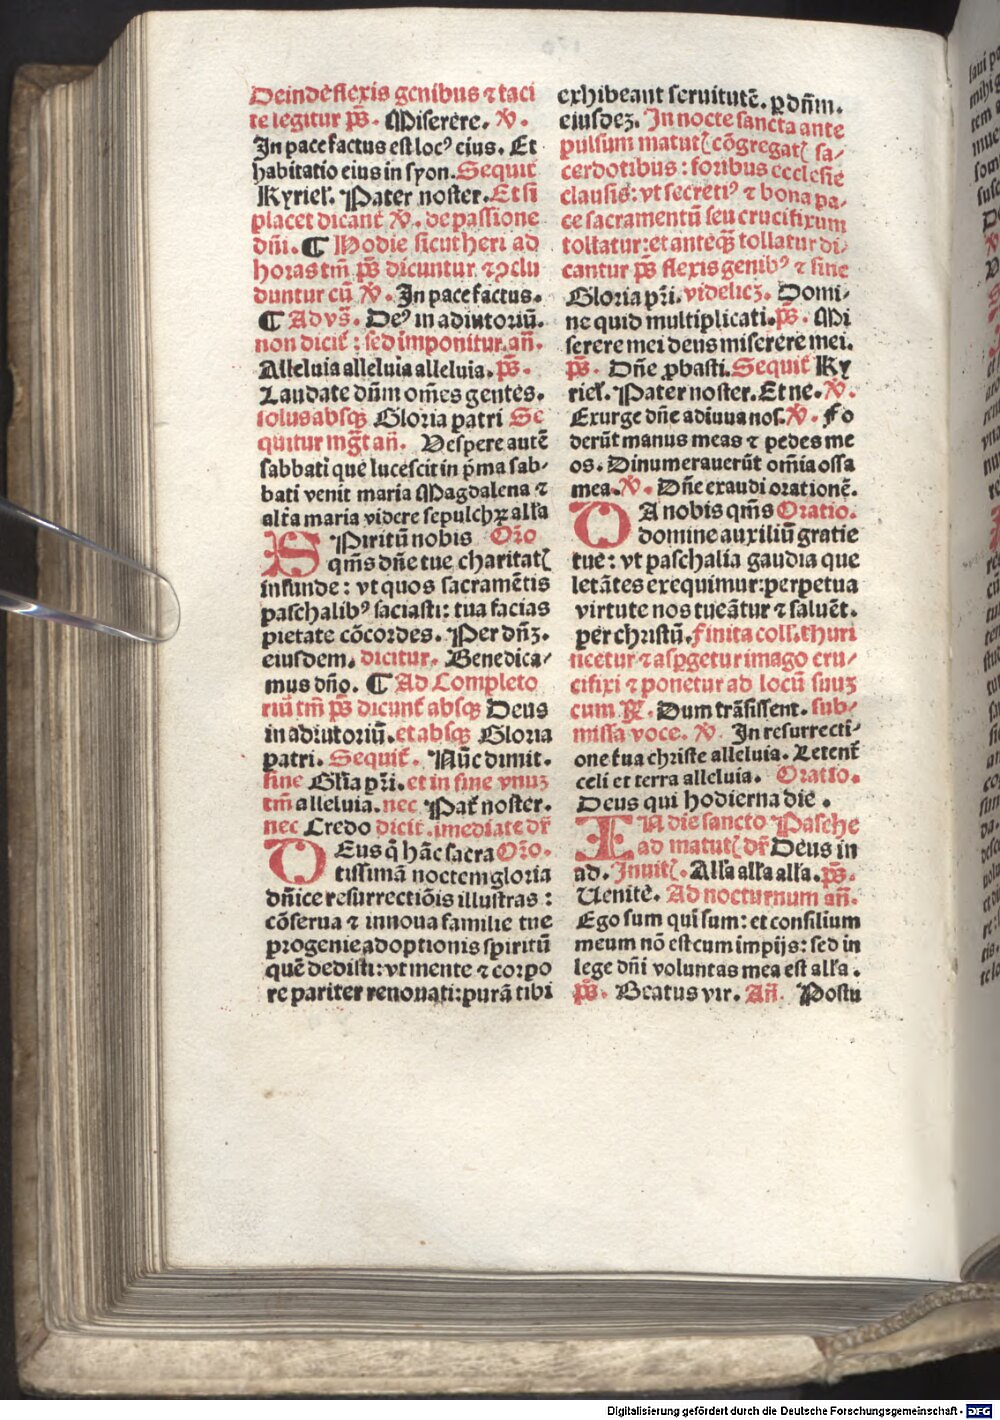 Deindē flexis genibus ⁊ taci
te legitur p̄s. Miserere. V̄.
In pace factus est locꝰ eius. Et
habitatio eius in syon. Sequit̄
Kyriel̄. Pater noster. Et si
placet dicant̄ V̄. de passione
dn̄i. ¶ Hodie sicut heri ad
horas tm̄ p̄s dicuntur ⁊ ꝯclu
duntur cū V̄. In pace factus.
¶ Ad vs̄. Deꝰ in adiutoriū.
non dicit̄: sed imponitur. an̄.
Alleluia alleluia alleluia. p̄s.
Laudate dn̄m om̄es gentes.
solus absqꝫ Gloria patri Se
quitur mḡt an̄. Vespere autē
sabbati que lucescit in p̄ma sab-
bati venit maria Magdalena ⁊
alt̄a maria videre sepulchꝝ all̄a
SPiritū nobis Or̄o
qm̄s dn̄e tue charitatꝭ
infunde: vt quos sacramētis
paschalibꝰ saciasti: tua facias
pietate cōcordes. Per dn̄ꝫ.
eiusdem. dicitur. Benedica-
mus dn̄o. ¶ Ad Completo
riū tm̄ p̄s dicunt̄ absqꝫ Deus
in adiutoriū. et absqꝫ Gloria
patri. Sequit̄. Nūc dimit.
sine Gl̄ia pr̄i. et in fine vnuꝫ
tm̄ alleluia. nec Pat̄ noster.
nec Credo dicit̄. imediate dr̄
DEus q̄ hāc sacra Or̄o.
tissimā noctem gloria
dn̄ice resurrectiōis illustras:
cōserua ⁊ innoua familie tue
progenie adoptionis spiritū
quē dedisti: vt mente ⁊ corpo
re pariter renouati: purā tibi
exhibeant seruitutē. ꝑ dn̄m.
eiusdeꝫ. In nocte sancta ante
pulsum matutꝭ cōgregatꝭ sa-
cerdotibus: foribus ecclesie
clausis: vt secretiꝰ ⁊ bona pa-
ce sacramentū seu crucifixum
tollatur: et anteqꝫ tollatur di-
cantur p̄s flexis genibꝰ ⁊ sine
Gloria pr̄i. videlicꝫ. Domi-
ne quid multiplicati. p̄s. Mi
serere mei deus miserere mei.
p̄s. Dn̄e ꝓbasti. Sequit̄ Ky
riel̄. Pater noster. Et ne. V̄.
Exurge dn̄e adiuua nos. V̄. Fo
derūt manus meas ⁊ pedes me
os. Dinumerauerūt om̄ia ossa
mea. V̄. Dn̄e exaudi orationē.
DA nobis qm̄s Oratio.
domine auxiliū gratie
tue: vt paschalia gaudia que
letātes exequimur: perpetua
virtute nos tueātur ⁊ saluēt.
per christū. Finita coll̄. thuri
ficetur ⁊ aspgetur imago cru-
cifixi ⁊ ponetur ad locū suuꝫ
cum R̄. Dum trāsissent. sub-
missa voce. V̄. In resurrecti-
one tua christe alleluia. Letent̄
celi et terra alleluia. Oratio.
Deus qui hodierna die.
IN die sancto Pasche
ad matutꝭ dr̄ Deus in
ad. Inuitꝭ. All̄a all̄a all̄a. p̄s.
Uenite. Ad nocturnum an̄.
Ego sum qui sum: et consilium
meum nō est cum impijs: sed in
lege dn̄i voluntas mea est all̄a.
p̄s. Beatus vir. An̄. Postu
Digitalisierung gefördert durch die Deutsche Forschungsgemeinschaft - DFG